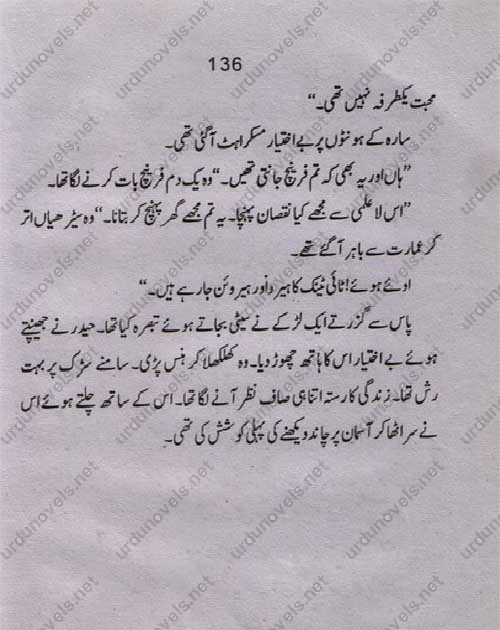 136
محبت یکطرفہ نہیں تھی۔“
سارہ کے ہونٹوں پر بے اختیار مسکراہٹ آ گئی تھی۔
”ہاں اور یہ بھی کہ تم فرنچ جانتی تھیں۔“ وہ یک دم فرنچ بات کرنے لگا تھا۔
”اس لا علمی سے مجھے کیا نقصان پہنچا۔ یہ تم مجھے گھر پہنچ کر بتانا۔“ وہ سیڑھیاں اتر
کر عمارت سے باہر آ گئے تھے۔
اوئے ہوئے! ٹائی ٹینک کا ہیرو اور ہیروئن جا رہے ہیں۔“
پاس سے گزرتے ایک لڑکے نے سیٹی بجاتے ہوئے تبصرہ کیا تھا۔ حیدر نے جھینپتے
ہوئے بے اختیار اس کا ہاتھ چھوڑ دیا۔ وہ کھلکھلا کر ہنس پڑی۔ سامنے سڑک پر بہت
رش تھا۔ زندگی کا رستہ اتنا ہی صاف نظر آنے لگا تھا۔ اس کے ساتھ چلتے ہوئے اس
نے سر اٹھا کر آسمان پر چاند دیکھنے کی پہلی کوشش کی تھی۔
urdunovels.net